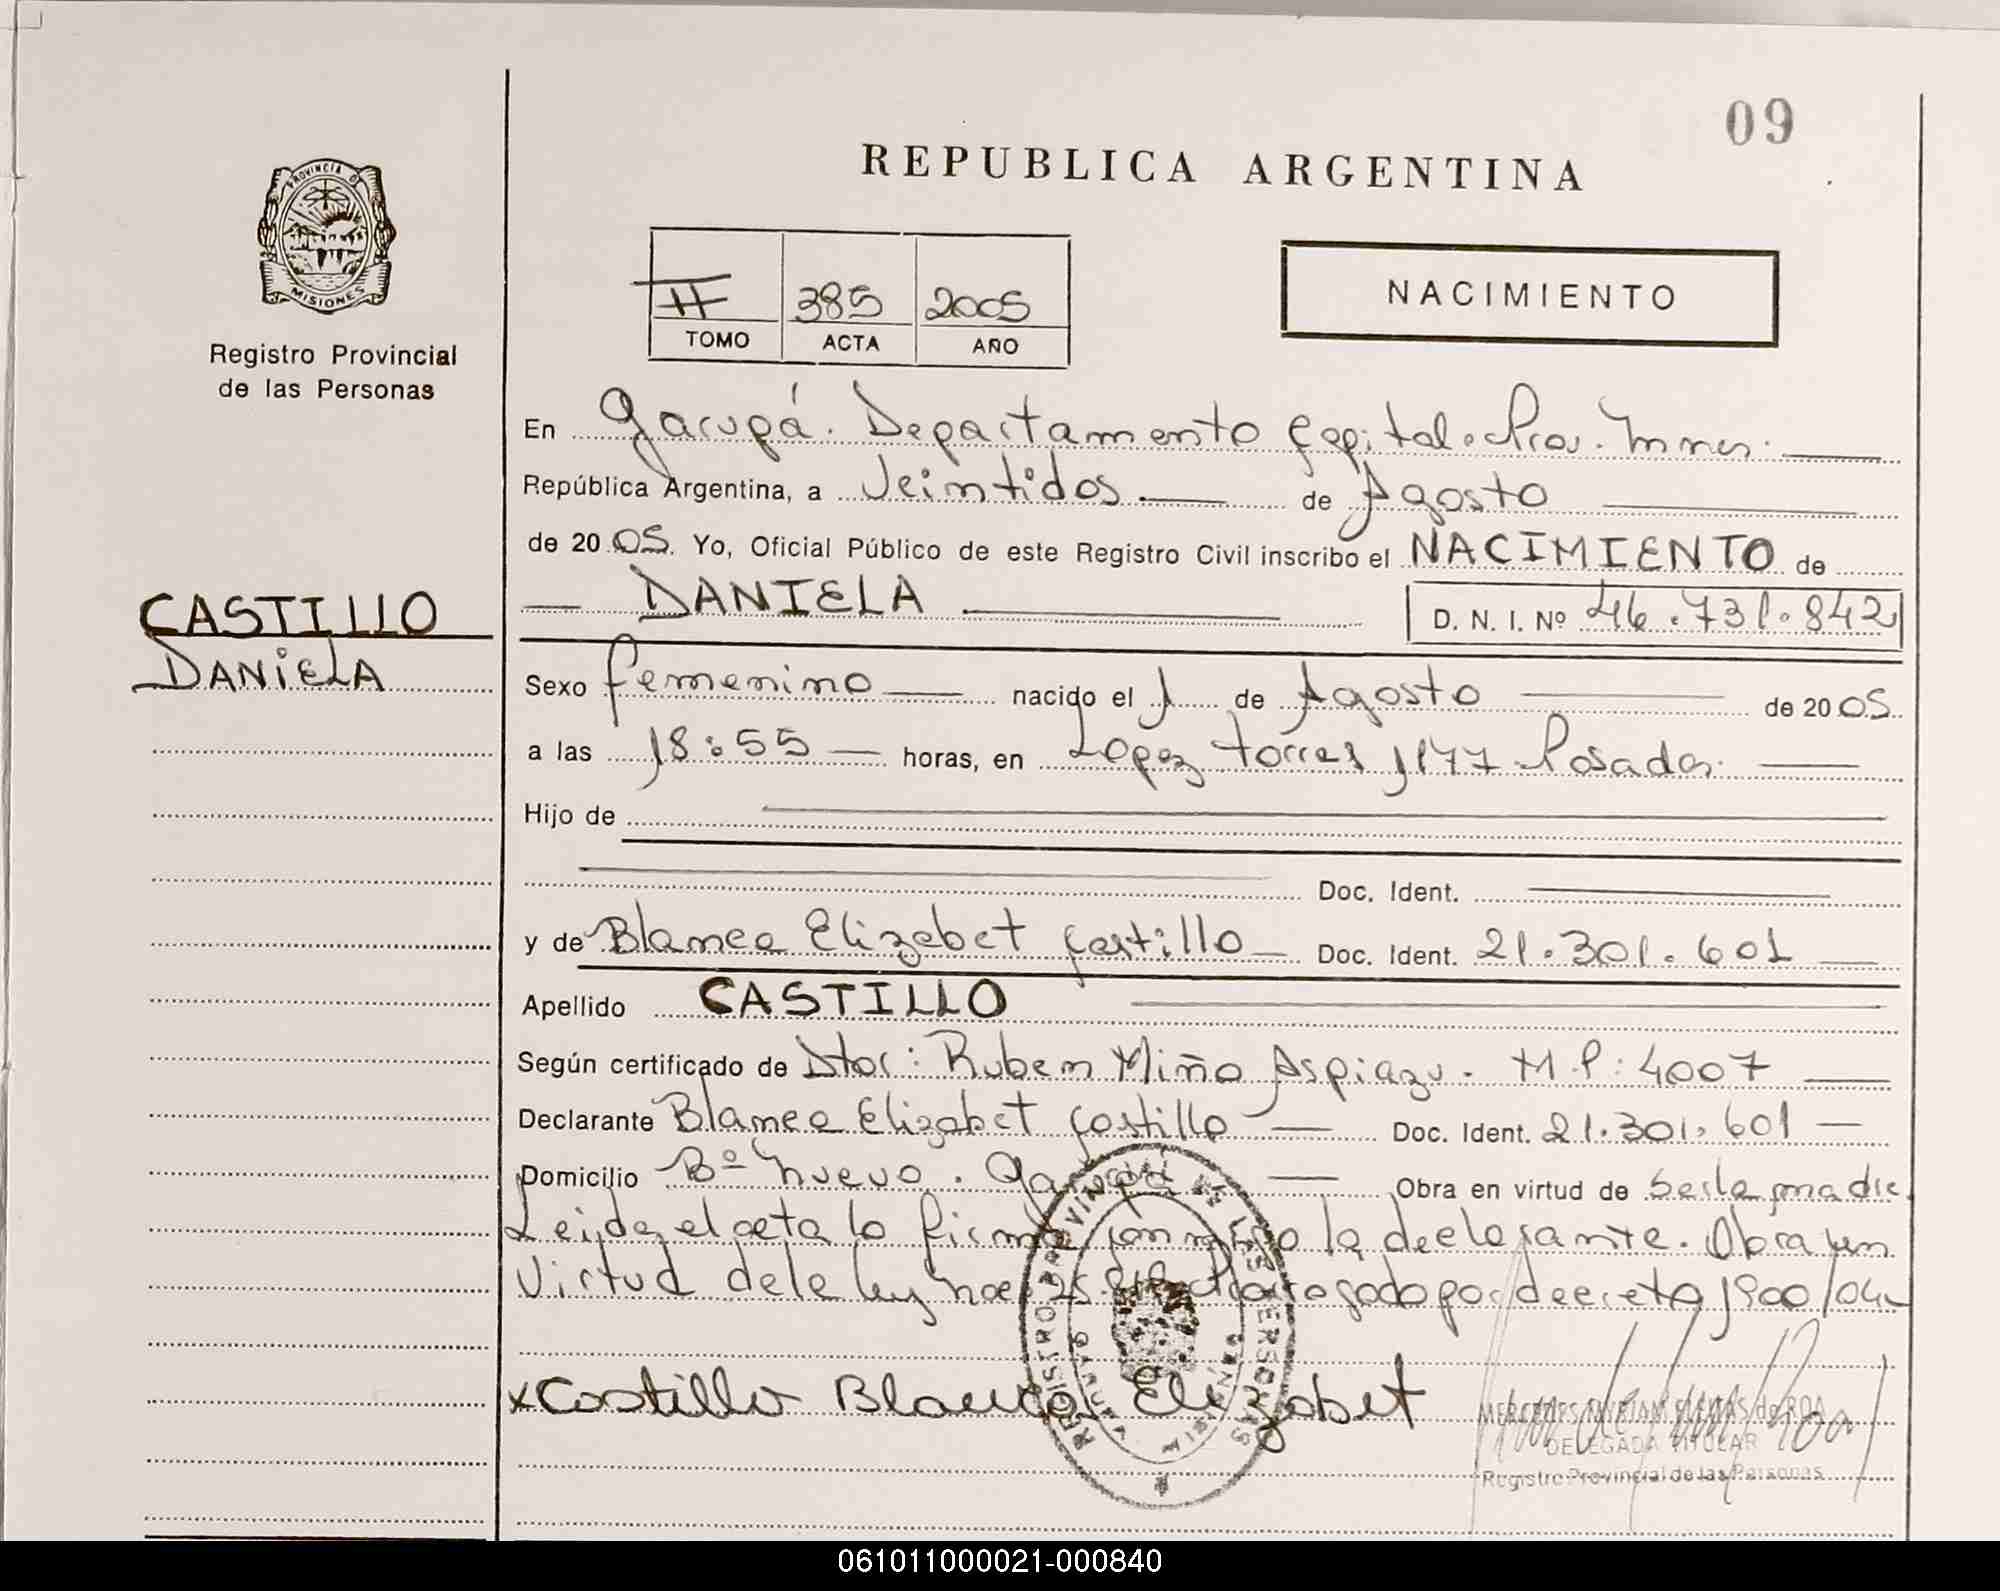 09
REPUBLICA ARGENTINA
PROVINCIA DE
MISIONES
Registro Provincial
de las Personas
II 385 2005
TOMO ACTA AÑO
NACIMIENTO
En Garupá. Departamento Capital. Prov. Mnes.
República Argentina, a Veintidos de Agosto
de 2005. Yo, Oficial Público de este Registro Civil inscribo el NACIMIENTO de
DANIELA D. N. I. Nº 46.731.842
CASTILLO
DANIELA
Sexo femenino nacido el 1 de Agosto de 2005
a las 18:55 horas, en Lopez Torres 1177 Posadas.
Hijo de
Doc. Ident.
y de Blanca Elizabet Castillo Doc. Ident. 21.301.601
Apellido CASTILLO
Según certificado de Dtor: Ruben Miño Aspiazu. M.P: 4007
Declarante Blanca Elizabet Castillo Doc. Ident. 21.301.601
Domicilio Bº Nuevo. Garupá Obra en virtud de ser la madre
Leida el acta la firma conmigo la declarante. Obra en
Virtud de la ley nac. prorrogado por decreto 1900/04
x Castillo Blanca Elizabet
REGISTRO PROVINCIAL DE LAS PERSONAS
MERCEDES MYRIAM de ROA
DELEGADA TITULAR
Registro Provincial de las Personas
061011000021-000840